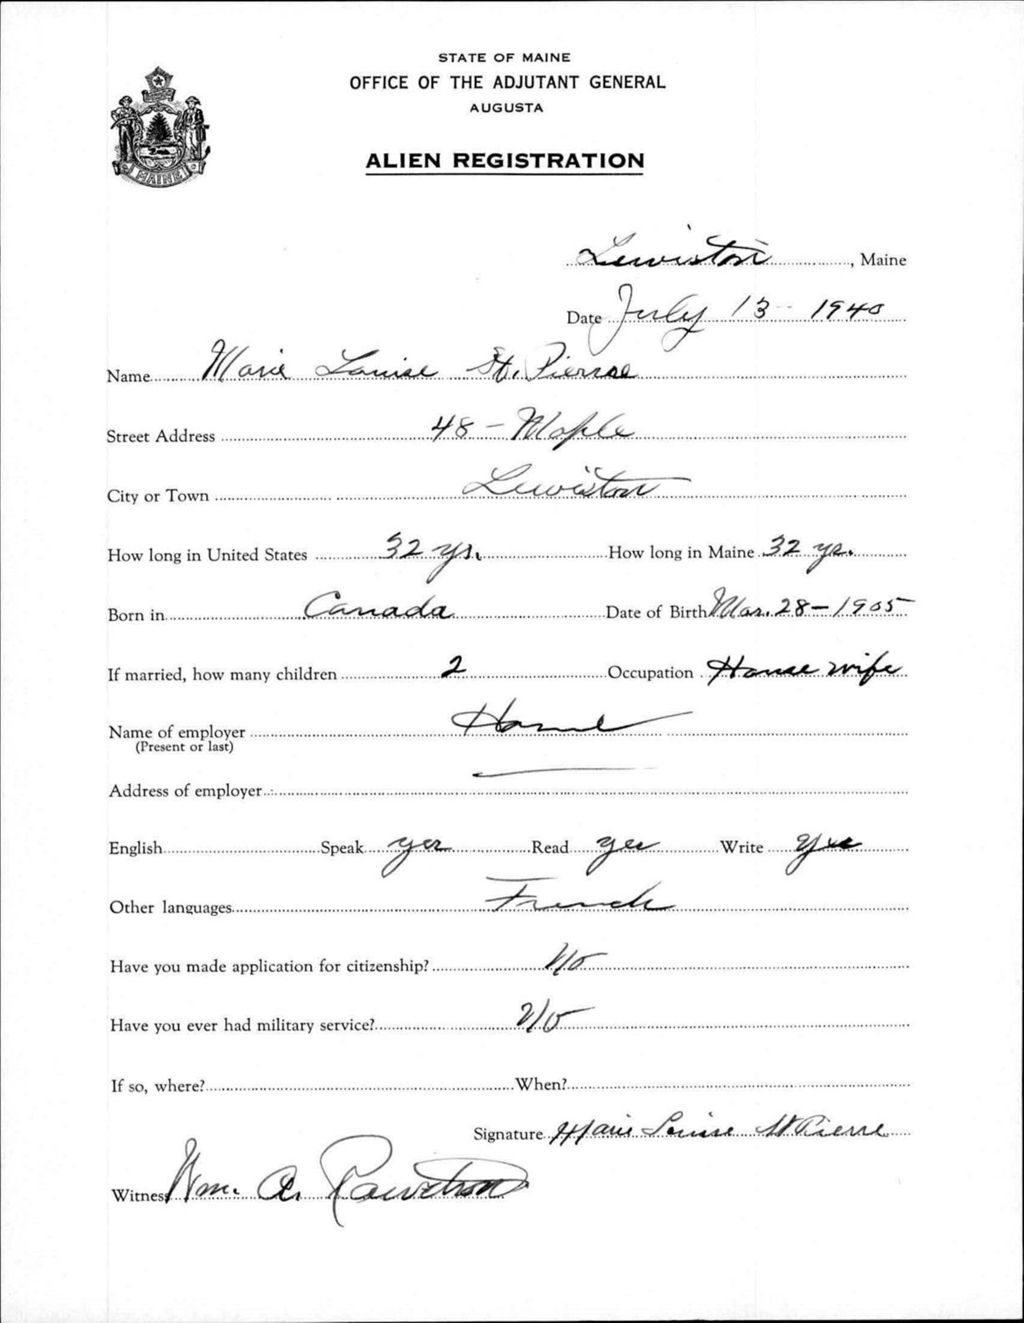 STATE OF MAINE
OFFICE OF THE ADJUTANT GENERAL
AUGUSTA
ALIEN REGISTRATION
MAINE
Lewiston, Maine
Date July 13 - 1940
Name Marie Louise St. Pierre
Street Address 48 - Maple
City or Town Lewiston
How long in United States 32 yrs. How long in Maine 32 yrs.
Born in Canada Date of Birth Mar. 28 - 1905
If married, how many children 2 Occupation House wife
Name of employer Home
(Present or last)
Address of employer
English Speak yes Read yes Write Yes
Other languages French
Have you made application for citizenship? No
Have you ever had military service? No
If so, where? When?
Signature Marie Louise St Pierre
Witness Wm. A.